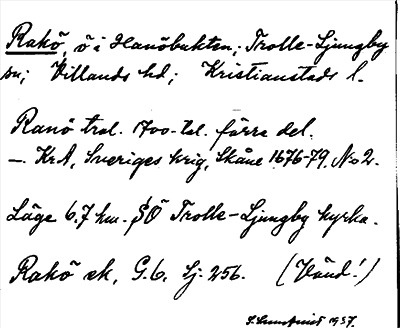 Rakö, ö i Hanöbukten; Trolle-Ljungby
sn; Villands hd; Kristianstads l.
Ranö trol. 1700-tal. förra del.
—. KrA, Sveriges krig, Skåne 1676-79, No 2.
Läge 6,7 km. SÖ Trolle-Ljungby kyrka.
Rakö ek, G.6. Lj. 256. (Vänd!)
1937.